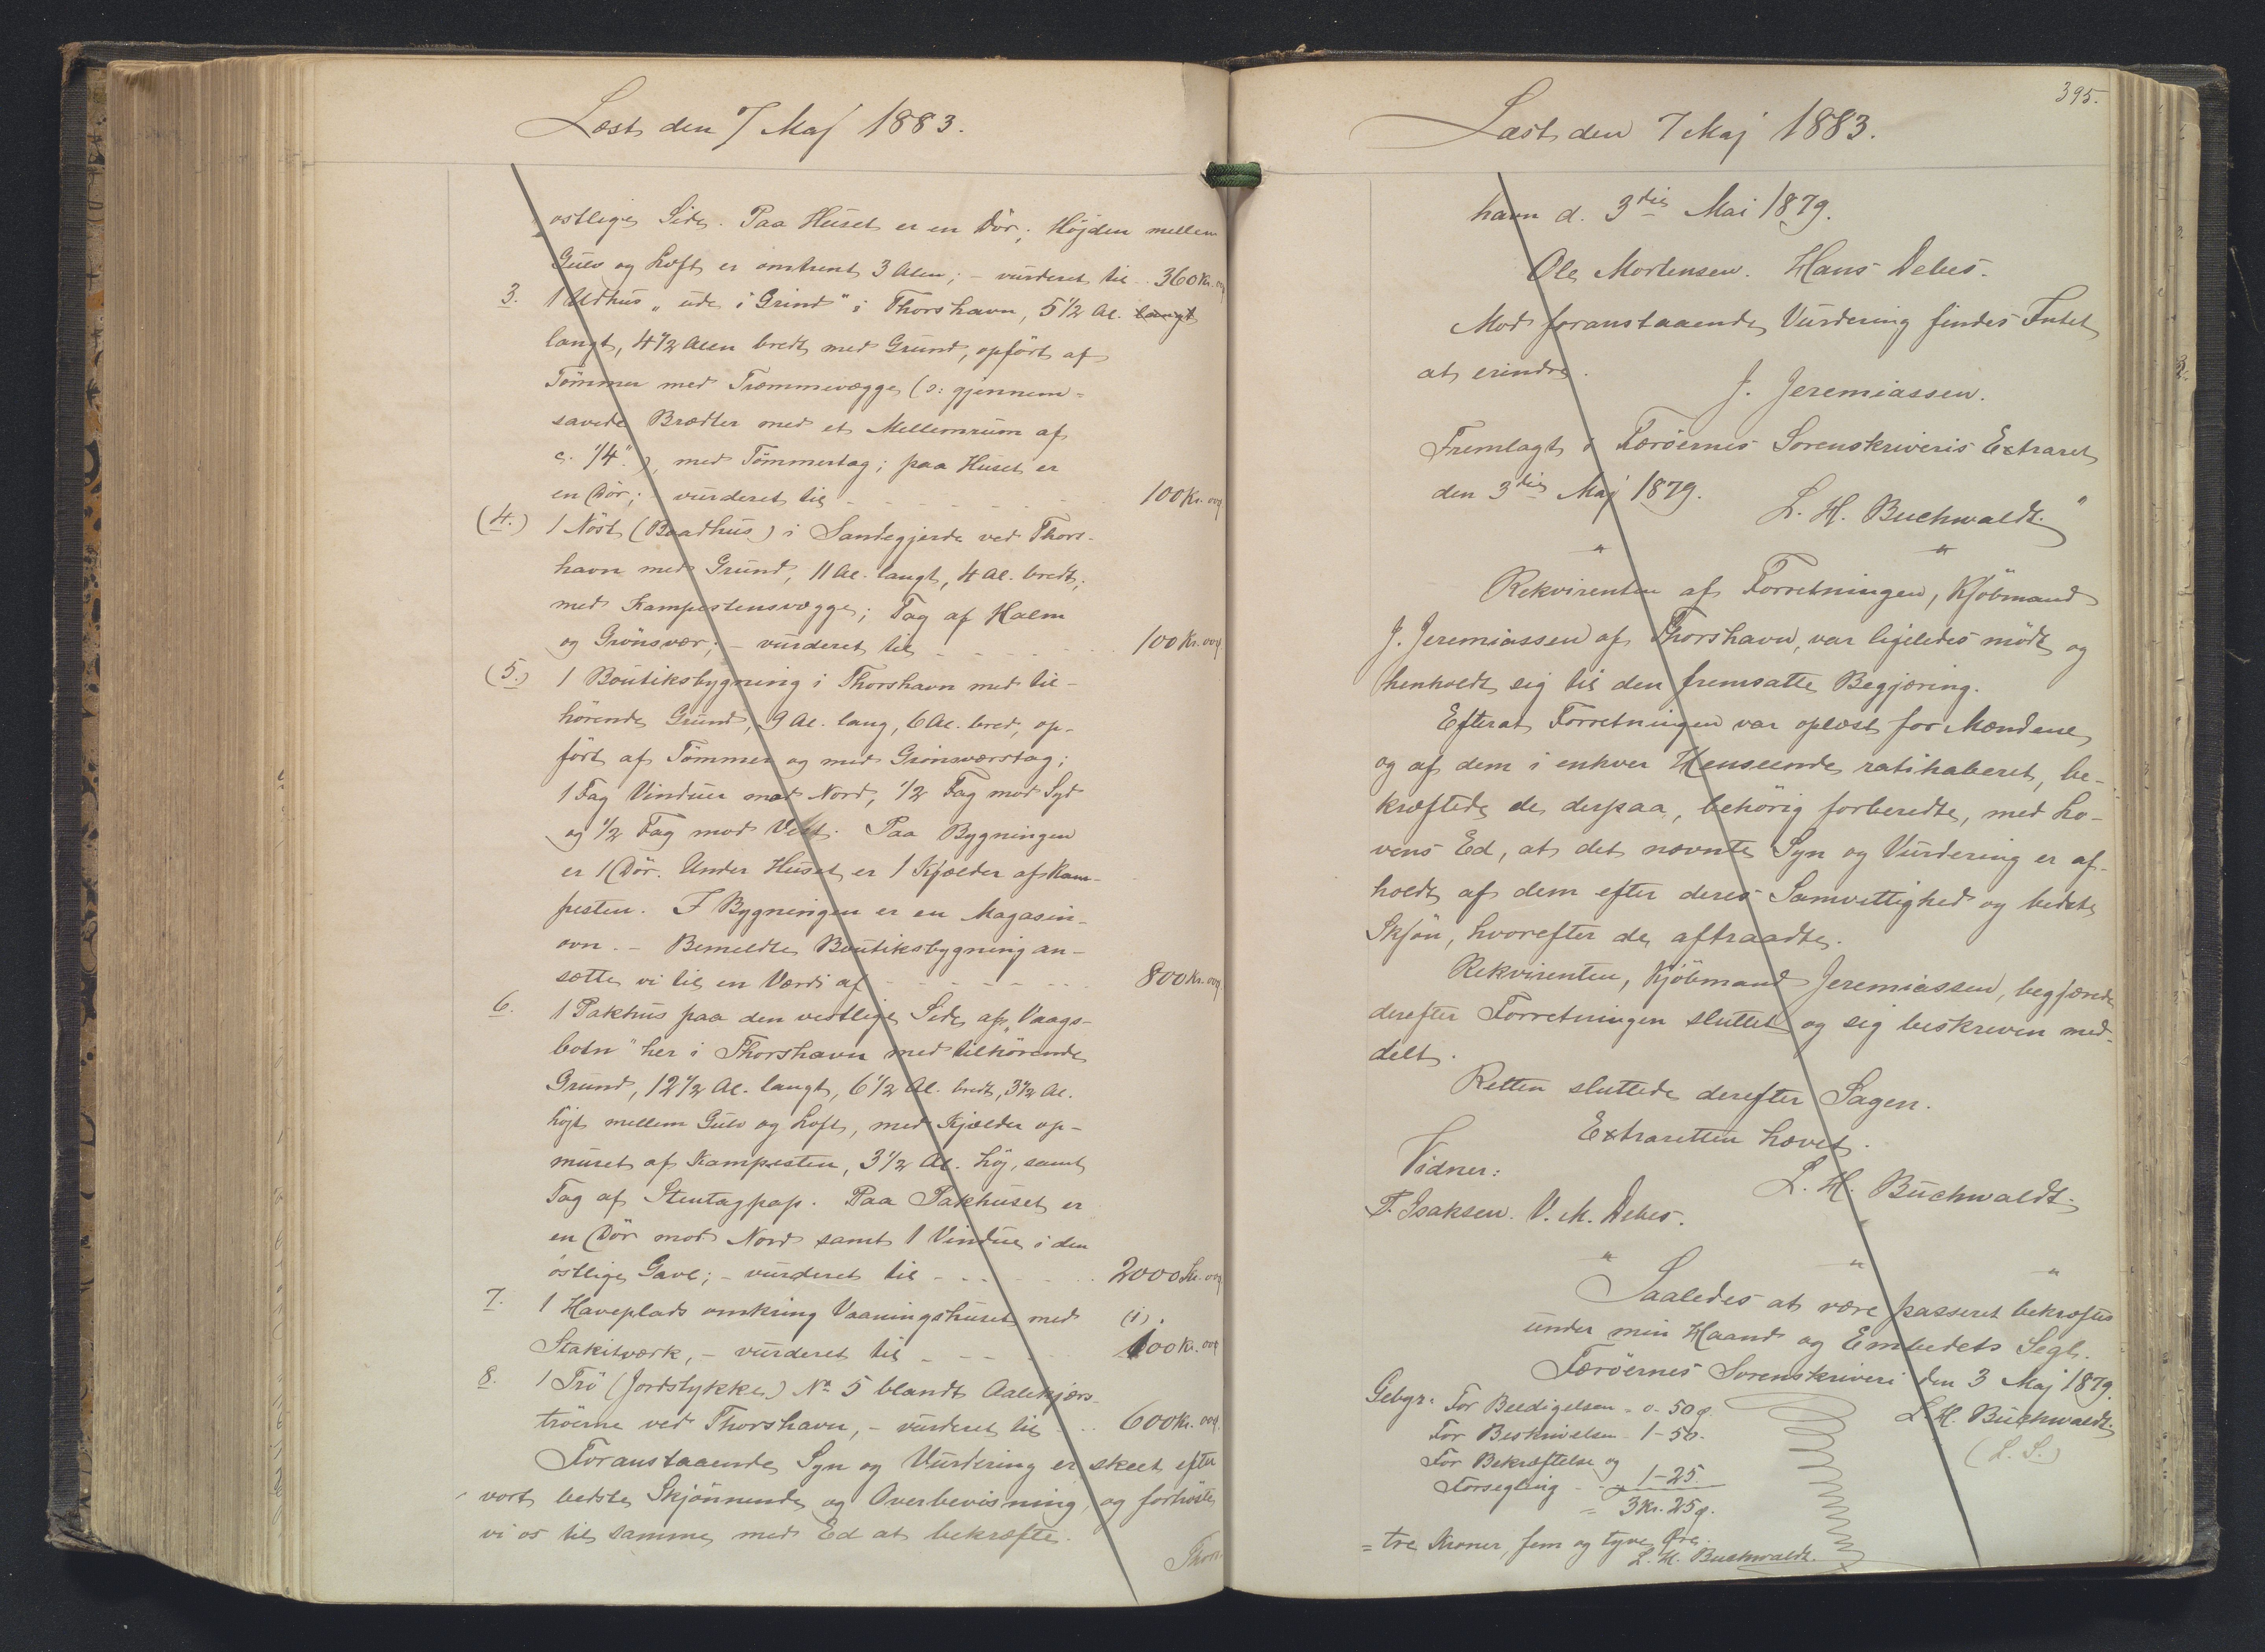 Læst den 7 Maj 1883.
östlige Side. Paa Huset er en Dör; Höjden mellem
Gulv og Loft er omtrent 3 Alen; - vurderet til - 360 Kr. 00
3. 1 Udhus "ude i Grind" i Thorshavn, 5 1/2 Al. langt
langt, 4 1/2 Alen bredt med Grund, opfört af
Tömmer med Tremmevægge (ɔ: gjennem=
savede Brædder med et Mellemrum af
c. 1/4"), med Tömmertag; paa Huset er
en Dör; - vurderet til - - - - - 100 Kr. 00
(4.) 1 Nöst (Baadhus) i Sandegjerde ved Thors-
havn med Grund, 11 Al. langt, 4 Al. bredt,
med Kampestensvægge; Tag af Halm
og Grönsvær; - vurderet til - - - - - 100 Kr. 00
(5.) 1 Boutiksbygning i Thorshavn med til-
hörende Grund, 9 Al. lang, 6 Al. bred, op-
fört af Tömmer og med Grönsværstag;
1 Fag Vinduer mod Nord, 1/2 Fag mod Syd
og 1/2 Fag mod Vest. Paa Bygningen
er 1 Dör. Under Huset er 1 Kjælder af Kam-
pesten. I Bygningen er en Magasin-
ovn. - Bemeldte Boutiksbygning an-
sætte vi til en Værdi af - - - - - 800 Kr. 00
6. 1 Pakhus paa den vestlige Side af "Vaags-
botn" her i Thorshavn med tilhörende
Grund, 12 1/2 Al. langt, 6 1/2 Al. bredt, 3 1/2 Al.
höjt mellem Gulv og Loft, med Kjælder op-
muret af Kampesten, 3 1/2 Al. höj, samt
Tag af Stentagpap. Paa Pakhuset er
en Dör mod Nord samt 1 Vindue i den
östlige Gavl; - vurderet til - - - - 2000 Kr. 00
7. 1 Haveplads omkring Vaaningshuset med (1).
Stakitværk, - vurderet til - - - - 100 Kr. 00
8. 1 Trö (Jordstykke) No 5 blandt Aalekjærs-
tröerne ved Thorshavn, - vurderet til - - 600 Kr. 00
Foranstaaende Syn og Vurdering er skeet efter
vort bedste Skjönnende og Overbevisning, og
vi os til samme med Ed at bekræfte.
Thors-
395.
Læst den 7 Maj 1883.
havn d. 3die Mai 1879.
Ole Mortensen. Hans Debes.
Mod foranstaaende Vurdering findes Intet
at erindre.
J. Jeremiassen.
Fremlagt i Færöernes Sorenskriveris Extraret
den 3die Maj 1879.
L. H. Buchwaldt."
" "
Rekvirenten af Forretningen, Kjöbmand
J. Jeremiassen af Thorshavn, var ligeledes mödt og
henholdt sig til den fremsatte Begjæring.
Efterat Forretningen var oplæst for Mændene
og af dem i enhver Henseende ratihaberet, be-
kræftede de derpaa, behörig forberedte, med Lo-
vens Ed, at det nævnte Syn og Vurdering er af-
holdt af dem efter deres Samvittighed og bedste
Skjön, hvorefter de aftraadte.
Rekvirenten, Kjöbmand Jeremiassen, begjærede
derefter Forretningen sluttet og sig beskreven med-
delt.
Retten sluttede derefter Sagen.
Extraretten hævet.
L. H. Buchwaldt.
Vidner:
T. Isaksen. V. M. Debes.
" " "
Saaledes at være passeret bekræftes
under min Haand og Embedets Segl.
Færöernes Sorenskriveri den 3 Maj 1879.
L. H. Buchwaldt.
(L. S.)
Gebyr: For Beedigelsen = 0 - 50 ø.
For Beskrivelsen - 1 - 50.
For Bekræftelse og
Forsegling - - 1 - 25.
= 3 Kr. 25 ø.
= tre Kroner, fem og tyve Øre.
L. H. Buchwaldt.